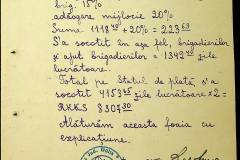 brig. 15%
adăogare mijlocie 20%
Suma 1118 + 20% = 223
S'a socotit în așa fel, brigadierilor
și ajut brigadierilor = 1342 zile
lucrătoare.
Total pe Statul de plată, s'a
socotit 4153 zile lucrătoare x 2 =
RKKS 8307.30
Alăturăm aceasta foaia cu
explicațiune.